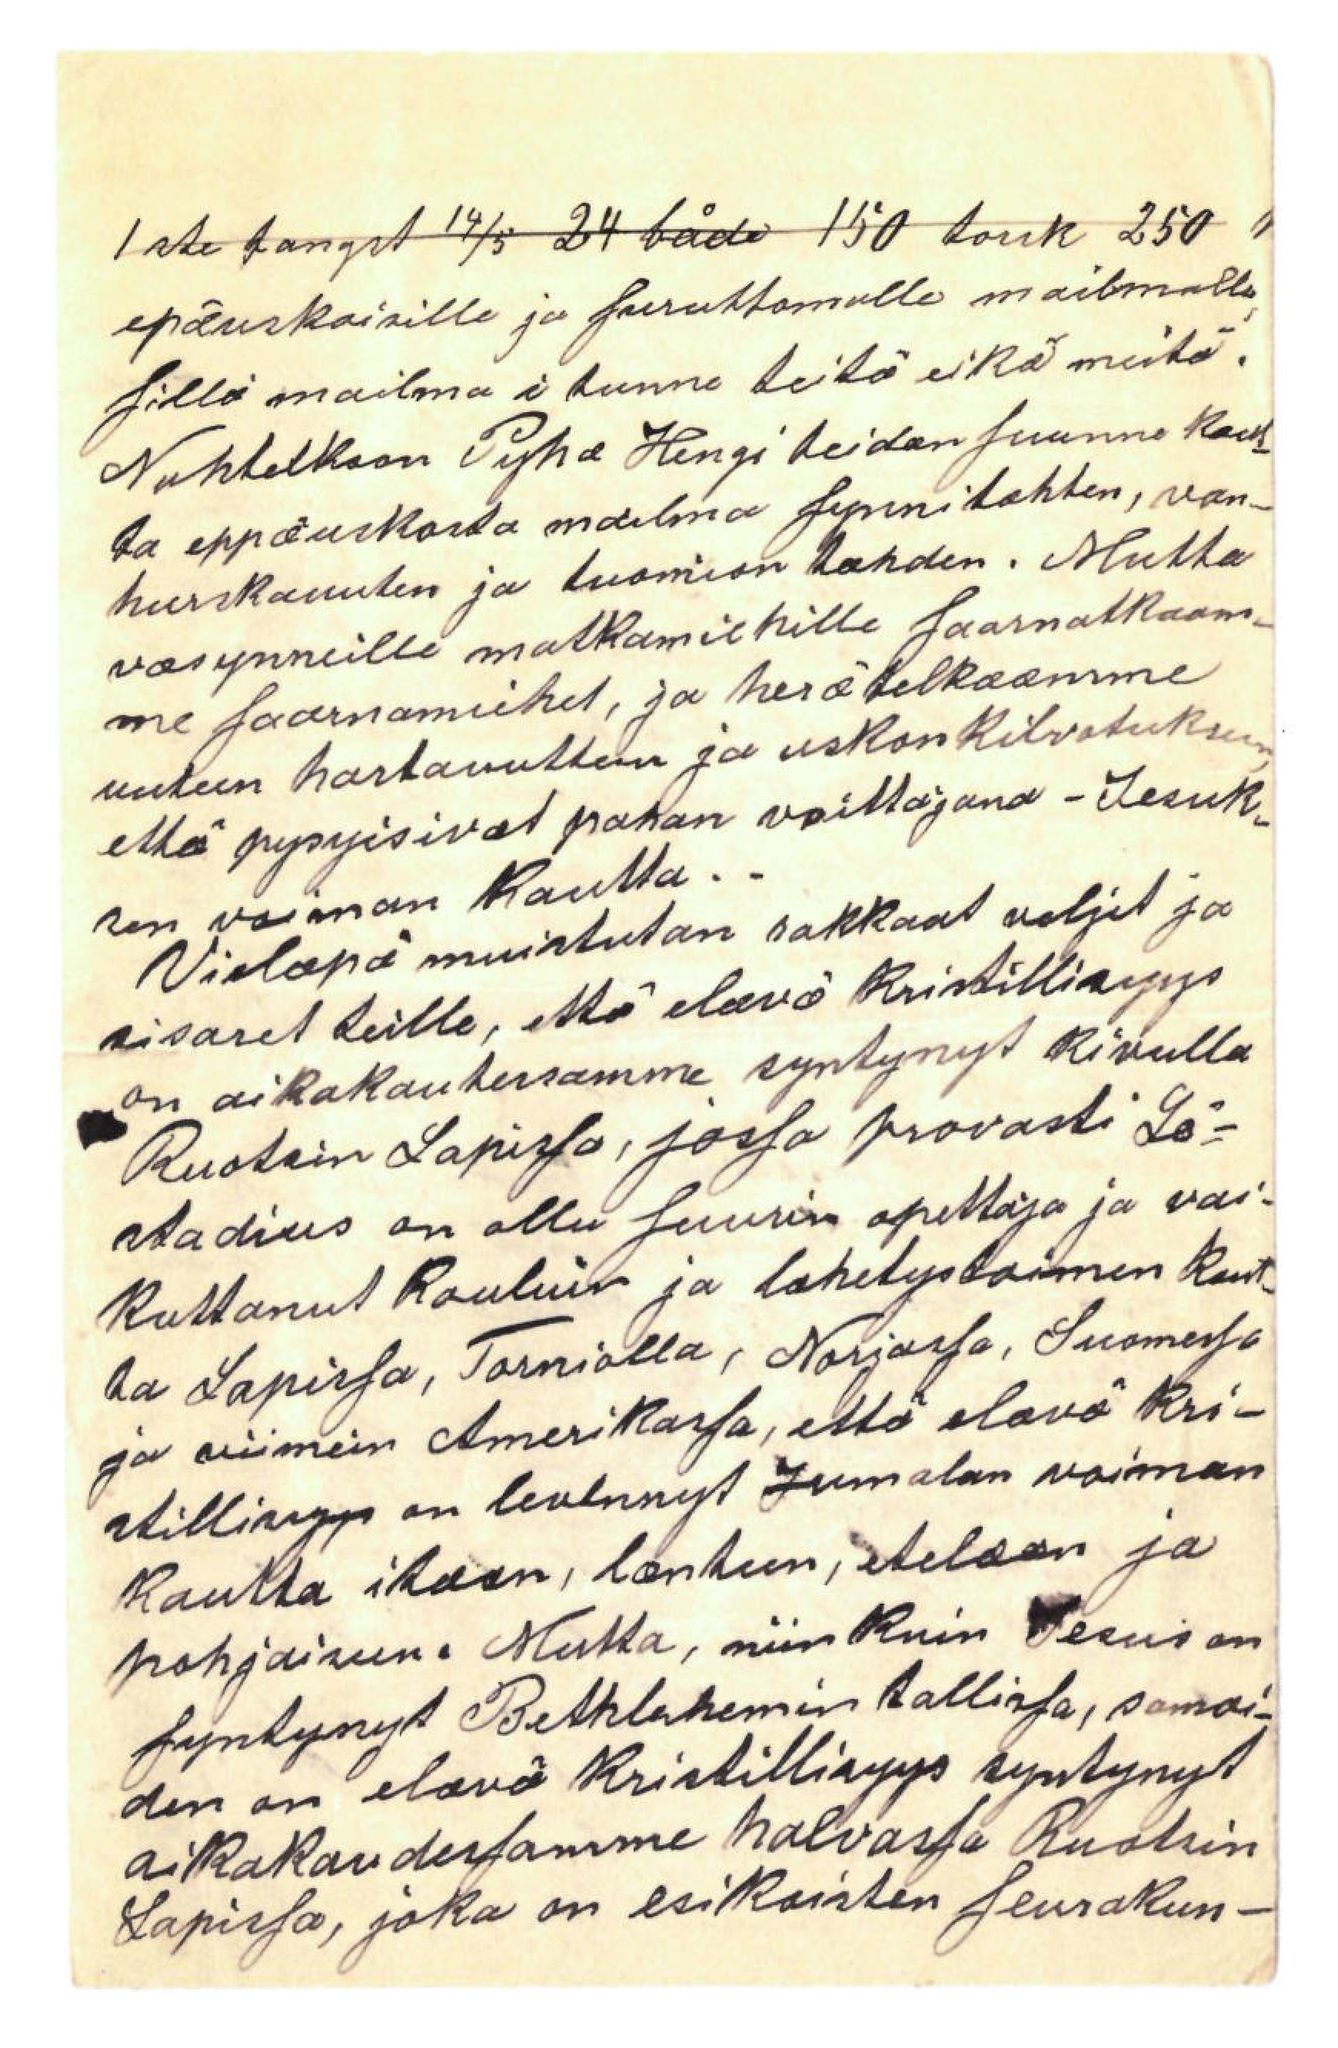 1 ste fangst 14/5 24 både 150 torsk 250 "
epäuskoisille ja suruttomalle mailmalle,
sillä mailma i tunne teitä eikä meitä.
Nuhtelkoon Pyhæ Hengi teidan suunne kaut-
ta eppäuskosta mailma synnitahten, van-
hurskauuten ja tuomion tahden. Mutta
væsynneille matkamiehille saarnatkaam-
me saarnamiehet, ja herätelkæænme
uuteen hartauuteen ja uskon kilvotukseen,
että pysyisivæt pahan voittajana - Jesuk-
sen voiman kautta. .-
Vielæpä muistutan rakkaat veljet ja
sisaret teille, että elævä kristillisyys
on aikakautessamme syntynyt kivulla
Ruotsin Lapissa, jossa provasti Lä-
stadius on ollu suurin opettaja ja vai-
kuttanut kouluin ja læhetystoimen kaut-
ta Lapissa, Torniolla, Norjassa, Suomessa
ja viimein Amerikassa, että elævä kri-
stillisyys on levennyt Jumalan voiman
kautta itææn, lænteen, etelææn ja
pohjaiseen. Mutta, niin kuin Jesus on
syntynyt Bethlehemin tallissa, samoi-
den on elævä kristillisyys syntynyt
aikakaudessamme halvassa Ruotsin
Lapissa, joka on esikoisten seurakun-